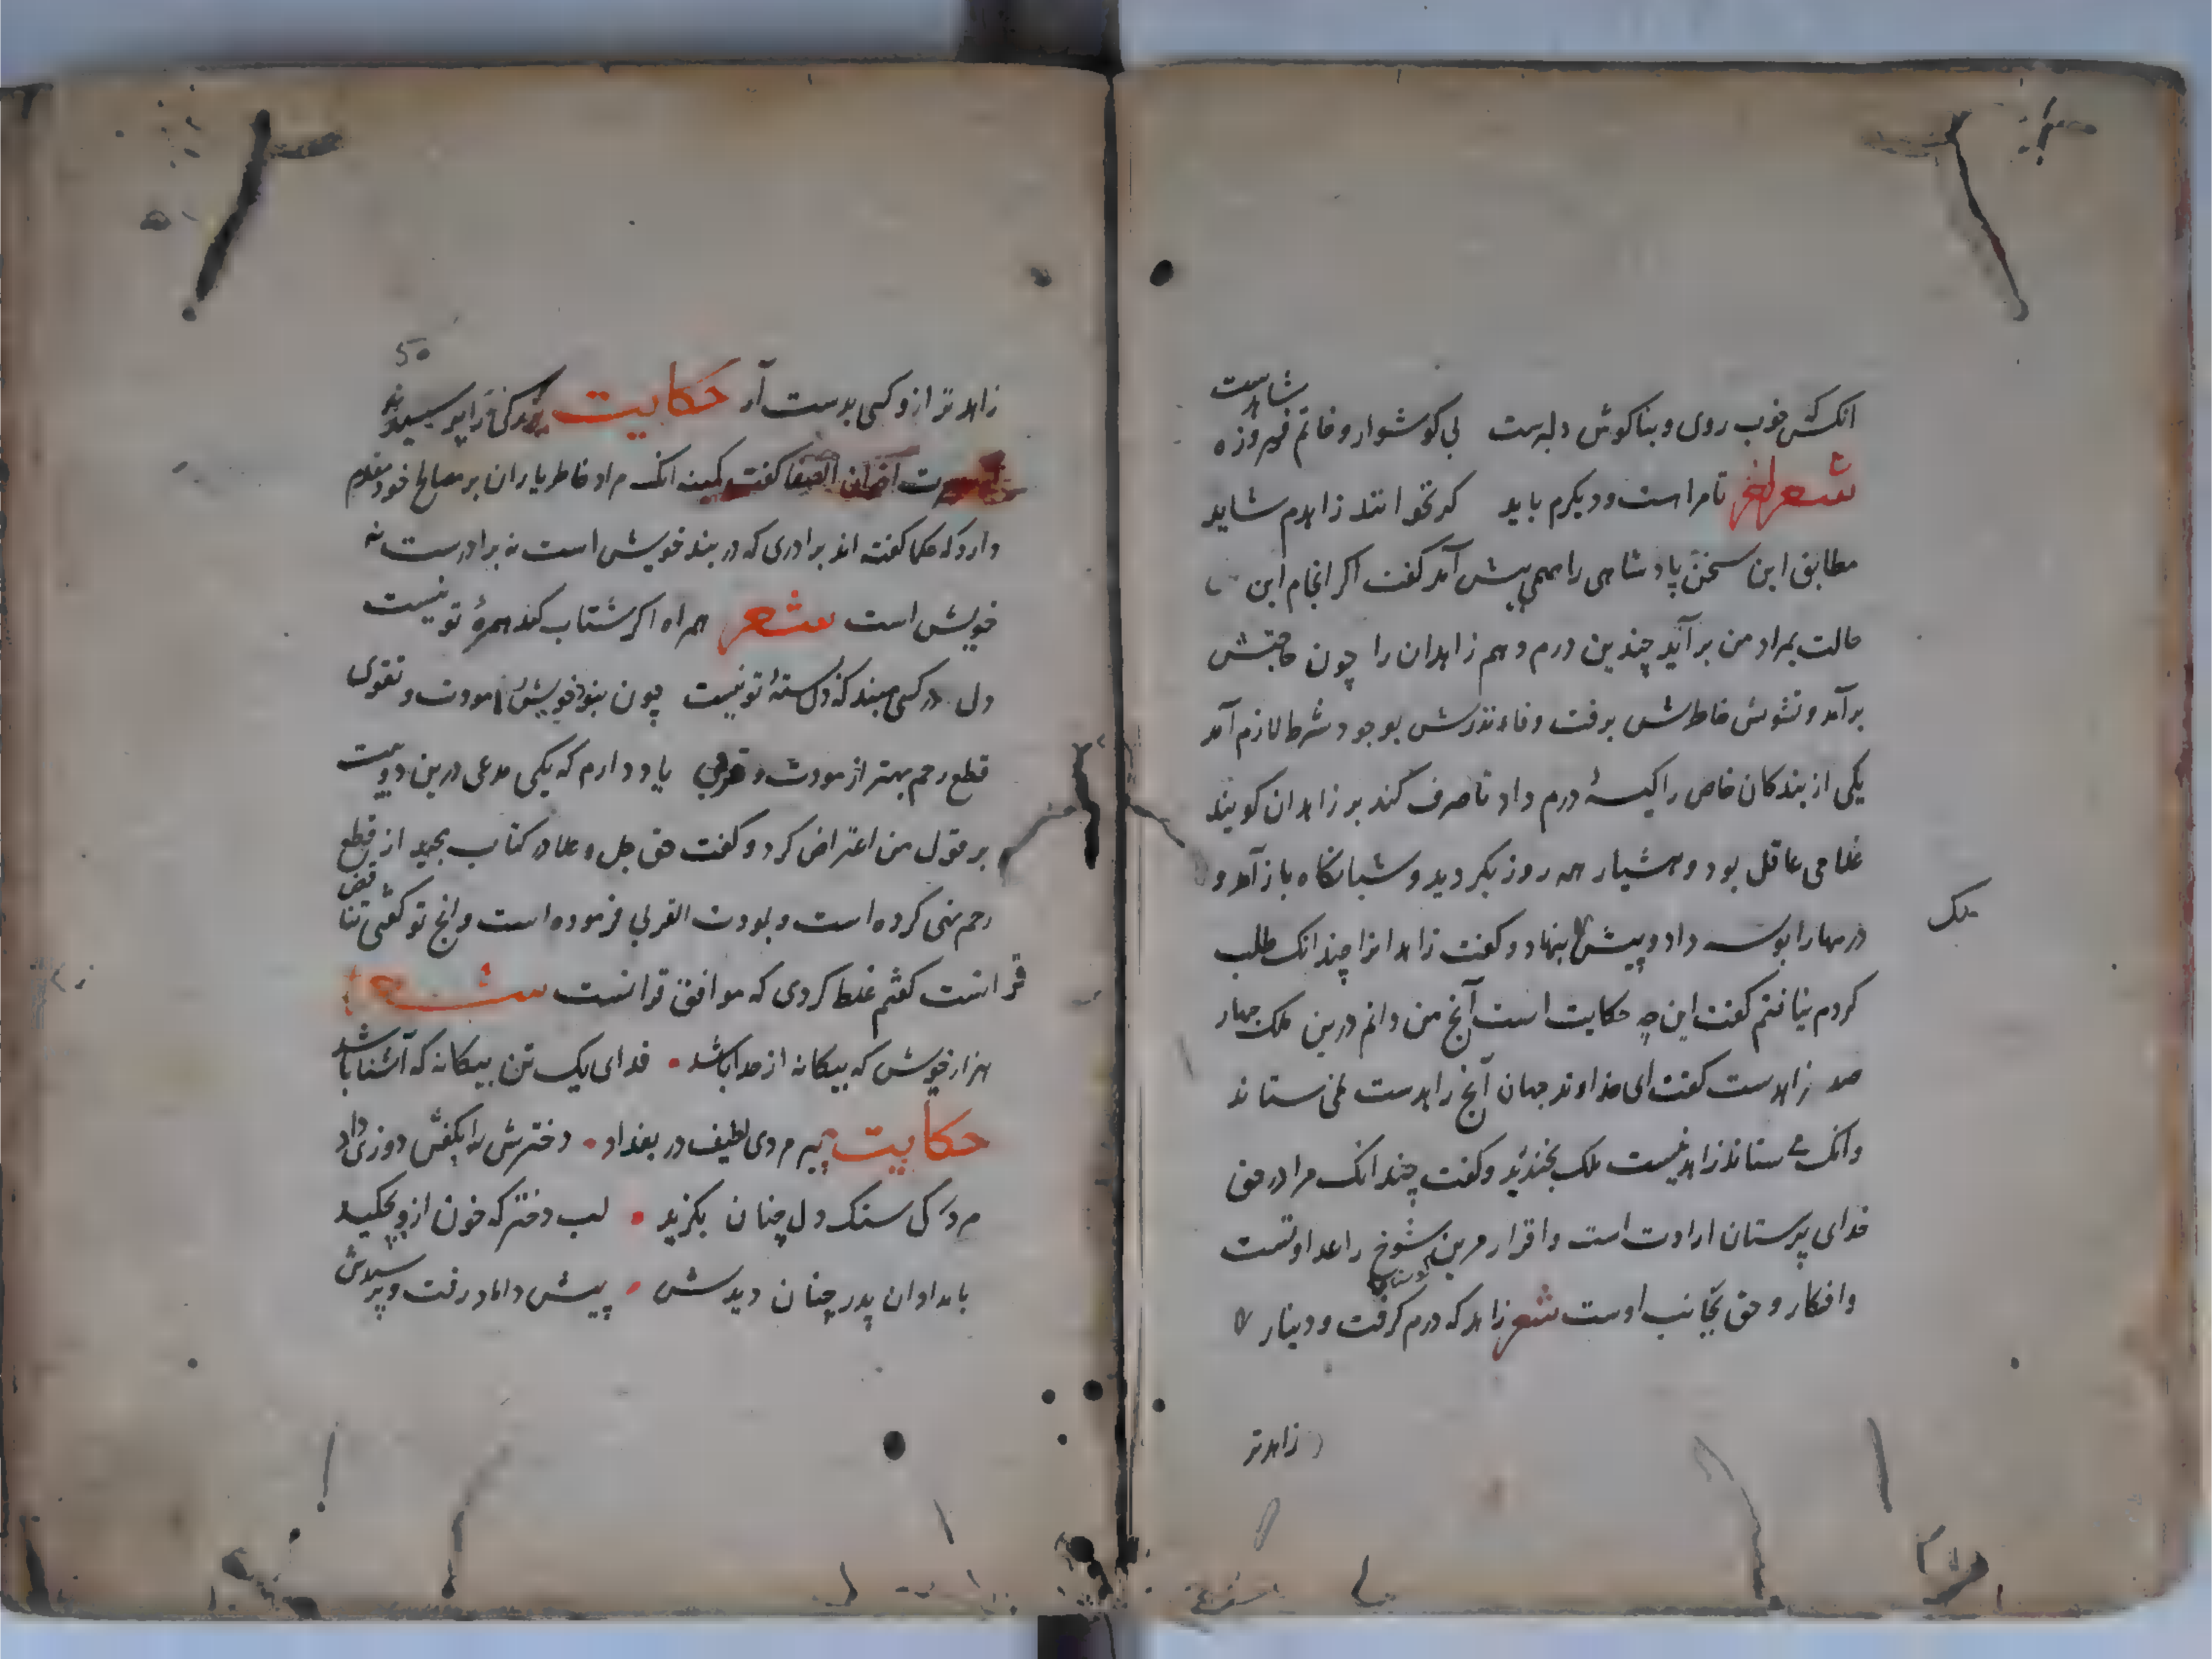 انکش خوب روی و بناکوش دلبرست بی کوشوار و خاتم فیروزه شاهدست
شعر اخر تا مراست و دیکرم باید کر نخوانند زاهدم شاید
مطابق این سخن پادشاهی را مهمی پیش آمد کفت اکر انجام این
حالت بمراد من برآید چندین درم دهم زاهدان را چون حاجتش
برآمد و تشویش خاطرش برفت وفاء نذرش بوجود شرط لازم آمد
یکی از بندکان خاص را کیسهٔ درم داد تا صرف کند بر زاهدان کویند
غلامی عاقل بود و هشیار همه روز بکردید و شبانکاه باز آمد و
درمها را بوسه داد و پیش ملک بنهاد و کفت زاهدانرا چندانک طلب
کردم نیافتم کفت این چه حکایت است آنچ من دانم درین ملک چهار
صد زاهدست کفت ای خداوند جهان آنچ زاهدست نمی ستاند
وانک می ستاند زاهد نیست ملک بخندید و کفت چندانک مرا در حق
خدای پرستان ارادت است و اقرار مرین شوخ را عداوتست
وانکار و حق بجانب اوست شعر زاهد که درم کرفت و دینار
زاهدتر
50
زاهدتر ازو کسی بدست آر حکایت بزرکی را پرسیدند
از سیرت اخوان الصفا کفت کمینه انک مراد خاطر یاران بر مصالح خود مقدم
دارد که حکما کفته اند برادری که در بند خویش است نه برادرست نه
خویش است شعر همراه اکر شتاب کند همره تو نیست
دل در کسی مبند که دل بستهٔ تو نیست چون نبود خویش را مودت و تقوی
قطع رحم بهتر از مودت و قربی یاد دارم که یکی مدعی درین دو بیت
بر قول من اعتراض کرد و کفت حق جل و علا در کتاب مجید از قطع
رحم نهی کرده است و بمودت القربی فرموده است وانج تو کفتی تناقض
قرانست کفتم غلط کردی که موافق قرانست شعر
هزار خویش که بیکانه از خدا باشد فدای یک تن بیکانه که آشنا باشد
حکایت پیر مردی لطیف در بغداد دخترش را بکفش دوزی داد
مردک سنک دل چنان بکزید لب دختر که خون ازو بچکید
بامدادان پدر چنان دیدش پیش داماد رفت و پرسیدش